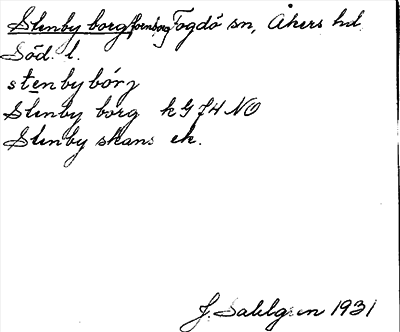 Stenby borg fornborg Fogdö sn, Åkers hd.
Söd. l.
stenbybórj
Stenby borg k G J4 NO
Stenby skans ek.
J. Sahlgren 1931